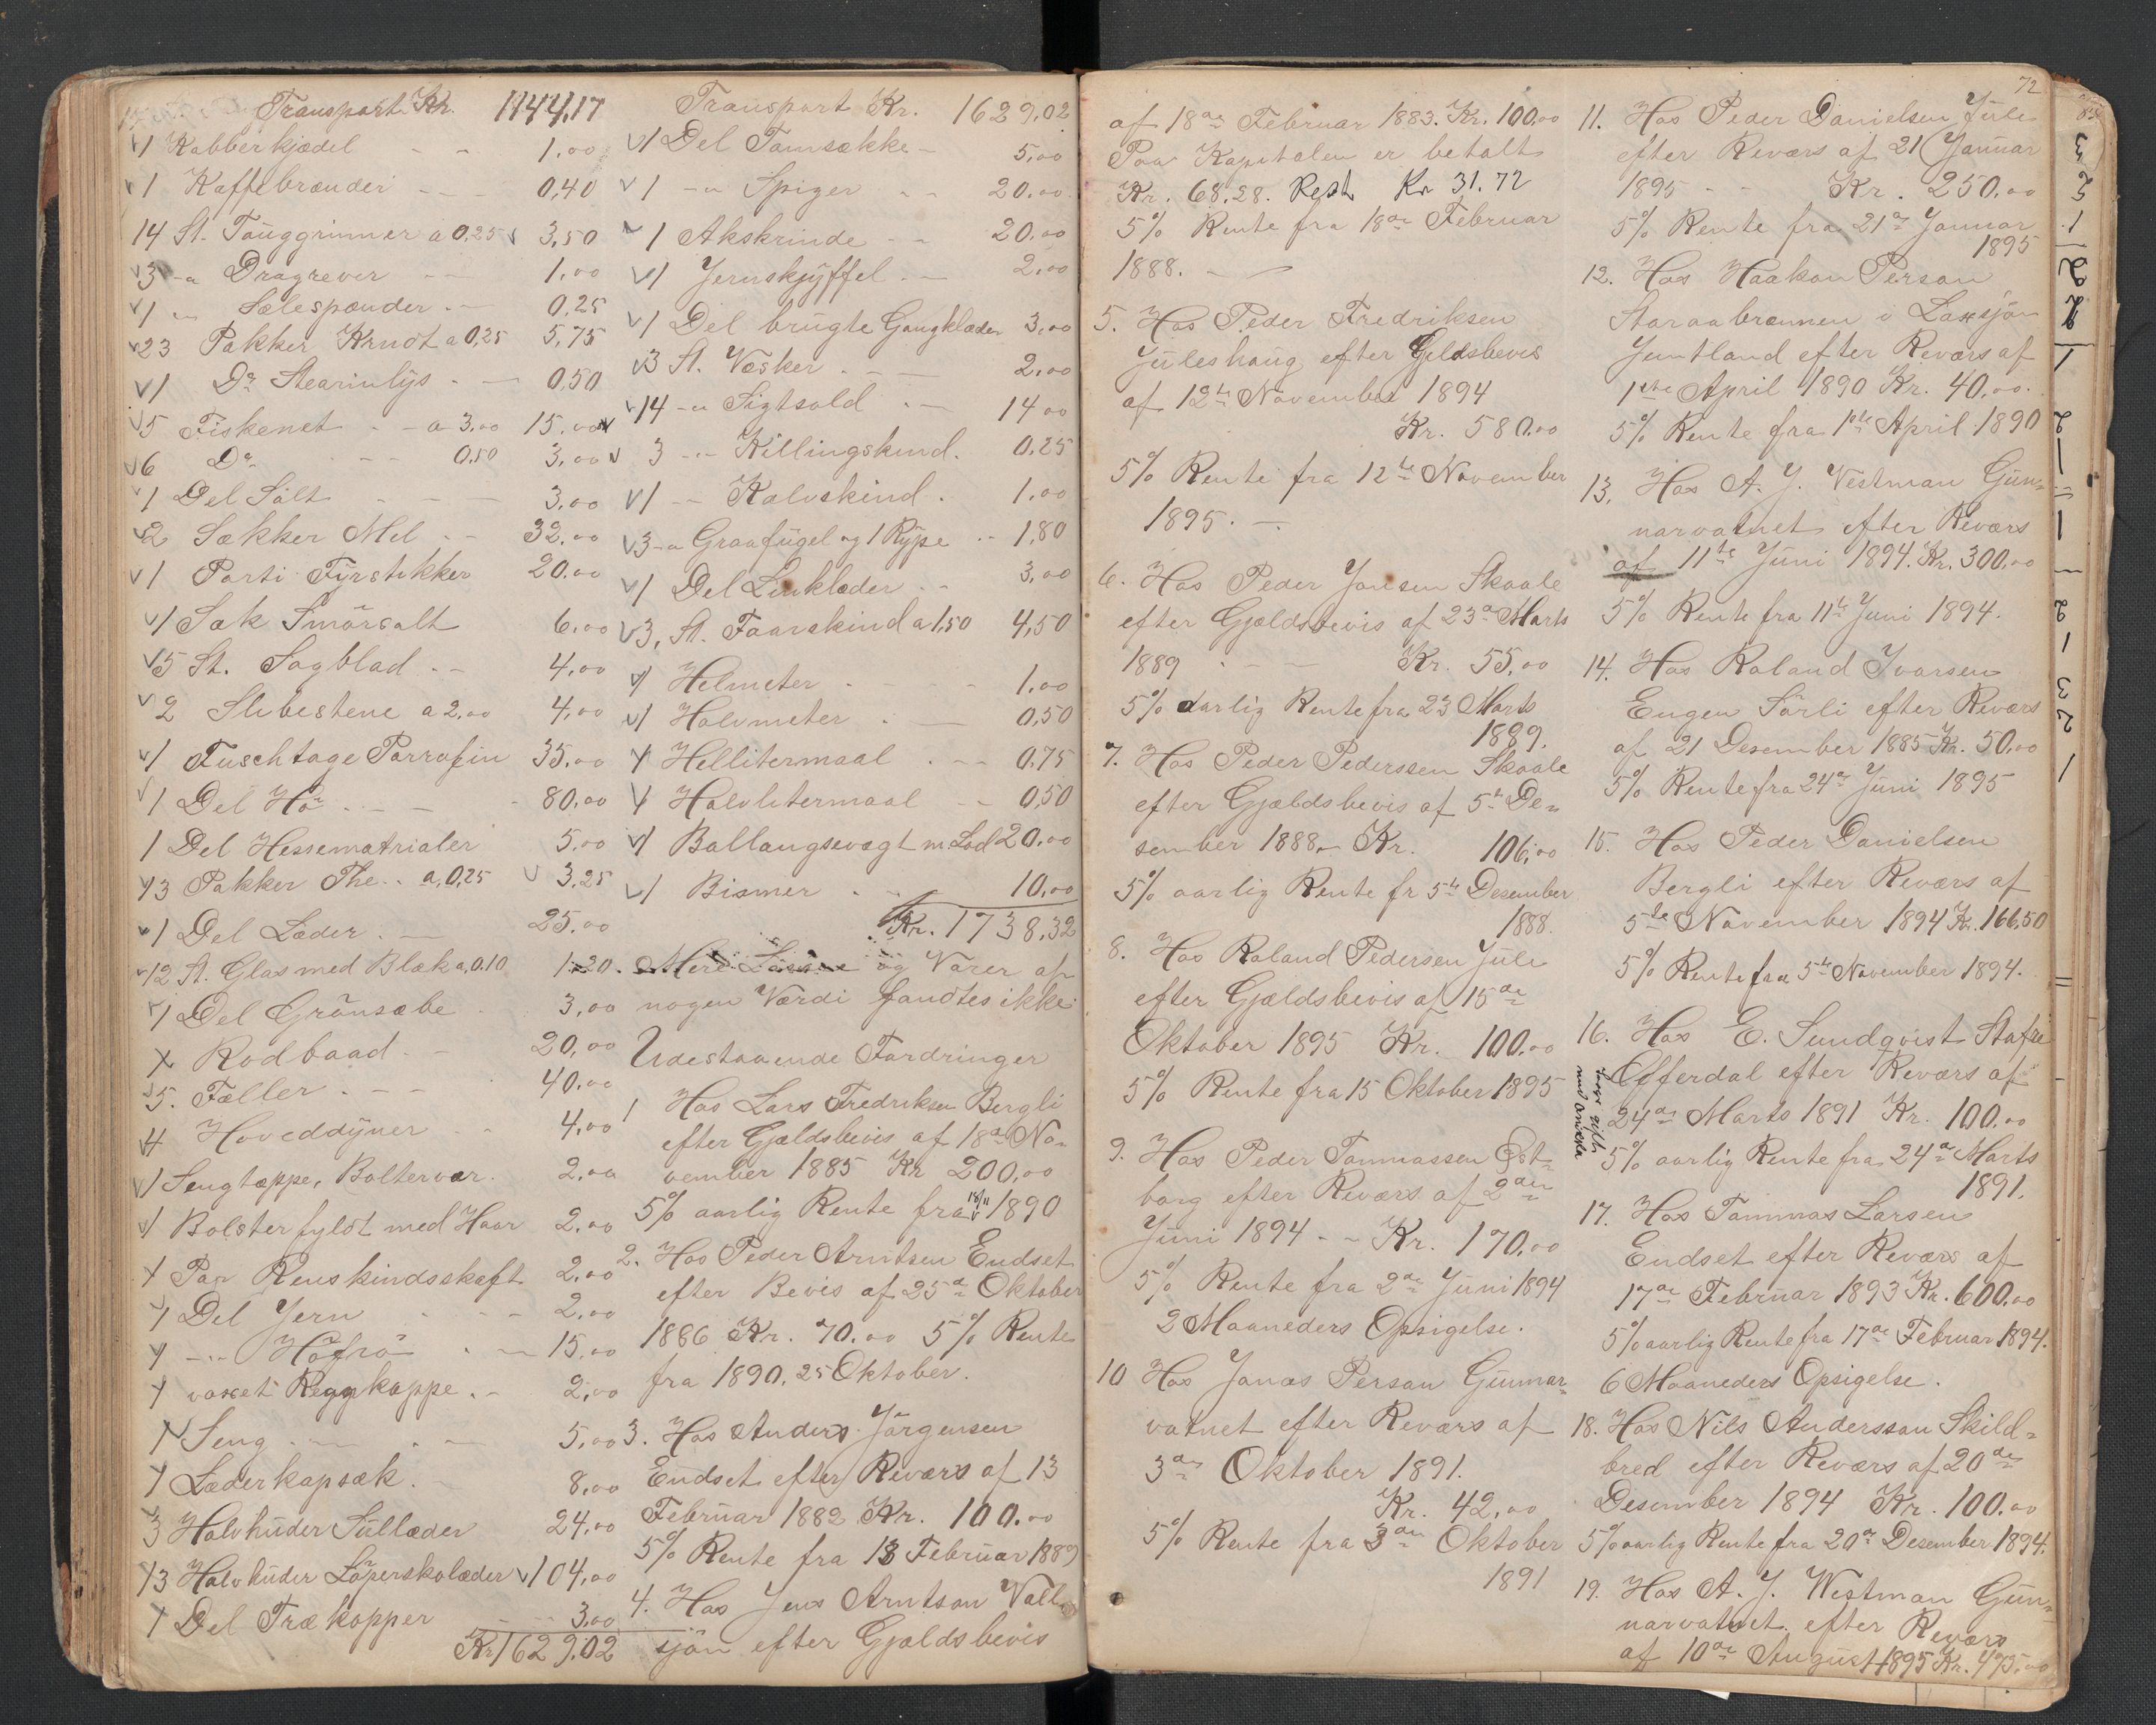 Transport Kr. 1144,17
1 Kabberkjædel - - 1.00
1 Kaffebrænder - - 0,40
14 St. Tougrinner a 0,25 3,50
3 -"- Dragrever - - 1,00
1 " Sælespænder - 0,25
23 Pakker Krudt a 0,25 5,75
1 Do Stearinlys - 0,50
5 Fiskenet - a 3,00 15.00
6 Do - - 0,50 3,00
1 Del Salt - - - 3,00
2 Sækker Mel - - 32,00
1 Parti Fyrstikker 20.00
1 Sæk Smörsalt 6.00
5 St. Sagblad - - 4,00
2 Slibestene a 2,00 4,00
1 Fuschtage Parrafin 35.00
1 Del Hö - - 80,00
1 Del Hessematrialer 5,00
13 Pakker The - a, 0,25 3,25
1 Del Læder - 25.00
12 St. Glas med Blæk a, 0.10 1.20
1 Del Grönsæbe 3,00
1 Rodbaad - - 20,00
5. Fæller - - 40.00
4 Hoveddyner - - 4,00
1 Sengtæppe, Boltervær 2,00
1 Bolster fyldt med Haar 2,00
1 Par Renskindsskaft 2,00
1 Del Jern - - - 2,00
1 -"- Höfrö - - 15,00
1 voxet Regnkappe - 2,00
1 Seng - - - 5,00
1 Læderkapsæk - 8,00
3 Halvhuder Sullæder 24,00
13 Halvhuder Löperskolæder 104,00
1 Del Trækopper - - 3,00
Kr 1629,02
Transport Kr. 1629,02
1 Del Tomsække - 5,00
1 -"- Spiger - - 20.00
1 Akskrinde - - 20.00
1 Jernskyffel - - 2,00
1 Del brugte Gangklæder 3,00
3 St. Væsker - - 2,00
14 -"- Sigtsold - - 14 00
3 -"- Killingskind. 0,25
1 -"- Kalvskind. 1,00
3 -"- Graafugel og 1 Rype - 1,80
1 Del Linklæder - - 3,00
3, St. Faarskind a 1,50 4,50
1 Helmeter - - - 1,00
1 Halvmeter - - 0,50
1 Hellitermaal - - 0.75
1 Halvlitermaal - - 0,50
1 Ballangsevægt m. Lod 20.00
1 Bismer - - 10,00
Kr. 1738,32
Mere Lösöre og Varer af
nogen Værdi fandtes ikke
Udestaaende Fordringer
1 Hos Lars Fredriksen Bergli
efter Gjældsbevis af 18de No-
vember 1885 Kr 200,00
5% aarlig Rente fra 18/11 1890
2. Hos Peder Arntsen Endset
efter Bevis af 25de Oktober
1886 Kr. 70.00 5% Rente
fra 1890. 25 Oktober.
3. Hos Anders Jörgensen
Endset efter Revers af 13
Februar 1882 Kr. 100.00
5% Rente fra 13 Februar 1889
4. Hos Jens Arntson Valle
sjön efter Gjældsbevis
72
af 18de Februar 1883. Kr. 100,00
Paa Kapitalen er betalt
Kr. 68,28. Rest Kr 31.72
5% Rente fra 18de Februar
1888. -
5. Hos Peder Fredriksen
Juleshaug efter Gjeldsbevis
af 12te November 1894
Kr. 580.00
5% Rente fra 12te November
1895. -
6. Hos Peder Jonsen Skaale
efter Gjældsbevis af 23de Marts
1889 - - Kr. 55,00
5% aarlig Rente fra 23 Marts
1889.
7. Hos Peder Pedersen Skaale
efter Gjældsbevis af 5te De-
sember 1888 Kr. 106,00
5% aarlig Rente fr 5te Desember
1888.
8. Hos Roland Pedersen Jule
efter Gjældsbevis af 15de
Oktober 1895 Kr. 100.00
5% Rente fra 15 Oktober 1895
9. Hos Peder Tommassen Öst-
borg efter Revers af 2den
Juni 1894 - Kr. 170,00
5% Rente fra 2de Juni 1894
2 Maaneders Opsigelse.
10 Hos Jonas Person Gunnar-
vatnet efter Revers af
3de Oktober 1891.
Kr. 42,00
5% Rente fra 3den Oktober
1891
11. Hos Peder Danielsen Jule
efter Revers af 21 Januar
1895 - - Kr. 250,00
5% Rente fra 21de Januar
1895
12. Hos Haakon Person
Storaabrennen i Laxsjön
Jemtland efter Revers af
1ste April 1890 Kr. 40,00.
5% Rente fra 1ste April 1890
13. Hos A. J. Vestman Gun-
narvatnet efter Revers
af 11te Juni 1894. Kr. 300,00
5% Rente fra 11te Juni 1894.
14. Hos Roland Ivarsen
Engen Sörli efter Revers
af 21 Desember 1885 Kr. 50,00
5% Rente fra 24de Juni 1895
15. Hos Peder Danielsen
Bergli efter Revers af
5te November 1894 Kr. 166,50
5% Rente fra 5te November 1894.
16. Hos E. Sundqvist Stafre
Offerdal efter Revers af
24de Marts 1891 Kr. 100.00
5% aarlig Rente fra 24de Marts
1891.
17. Hos Tommas Larsen
Endset efter Revers af
17de Februar 1893 Kr. 600,00
5% aarlig Rente fra 17de Februar 1894.
6 Maaneders Opsigelse.
18. Hos Nils Andersson Skild-
bred efter Revers af 20de
Desember 1894 Kr. 100.00
5% aarlig Rente fra 20de Desember 1894.
19. Hos A. J. Westman Gun-
narvatnet efter Revers
af 10de August 1895 Kr. 475.00